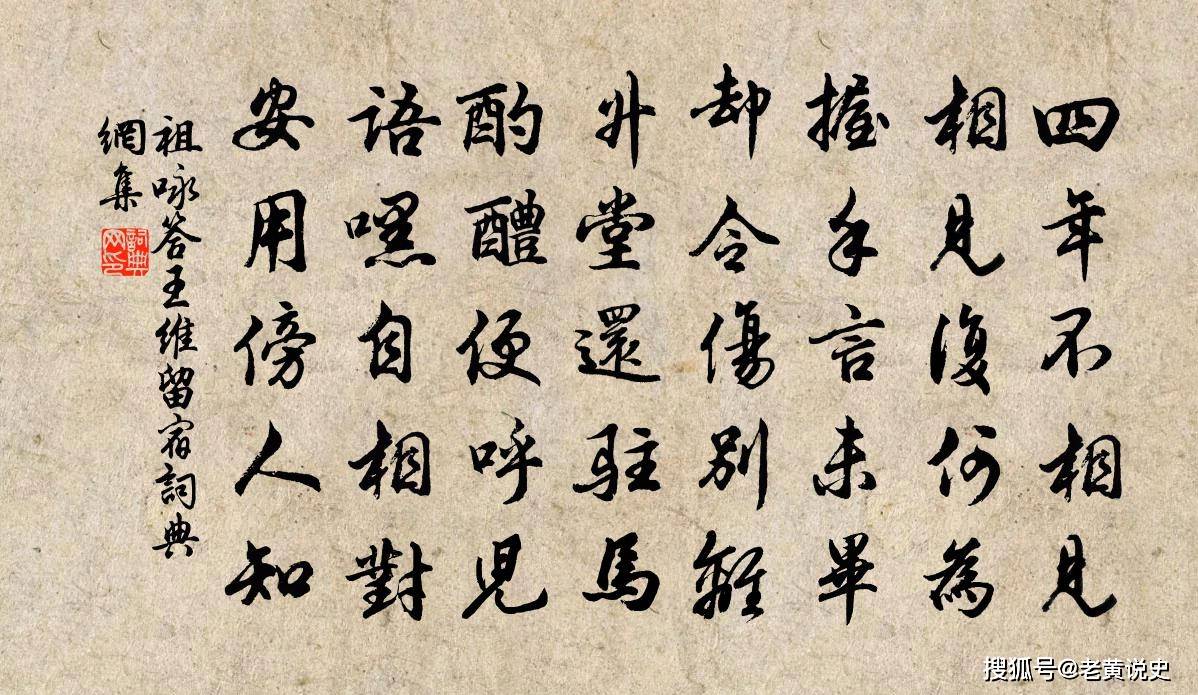 四年不相見
相見復何為
握手言未畢
却令傷別離
升堂還駐馬
酌醴便呼兒
語嘿自相對
安用傍人知
祖咏答王維留宿詞典
網集
詞典
网印
搜狐号@老黄说史